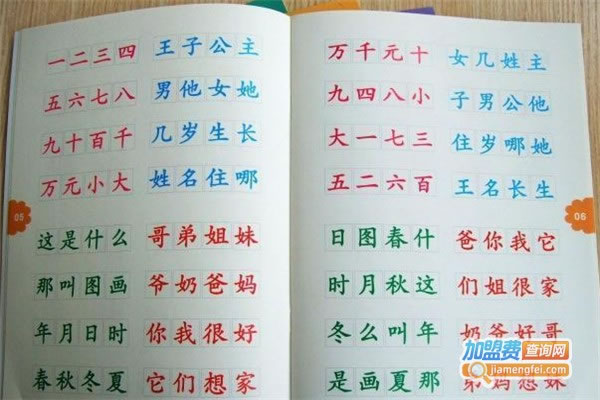 一二三四 王子公主
五六七八 男他女她
九十百千 几岁生长
万元小大 姓名住哪
这是什么 哥弟姐妹
那叫图画 爷奶爸妈
年月日时 你我很好
春秋冬夏 它们想家
05
万千元十 女几姓主
九四八小 子男公他
大一七三 住岁哪她
五二六百 王名长生
日图春什 爸你我它
时月秋这 们姐很家
冬么叫年 奶爷好哥
是画夏那 弟妈想妹
06
加盟费查询网
jiamengfei.com